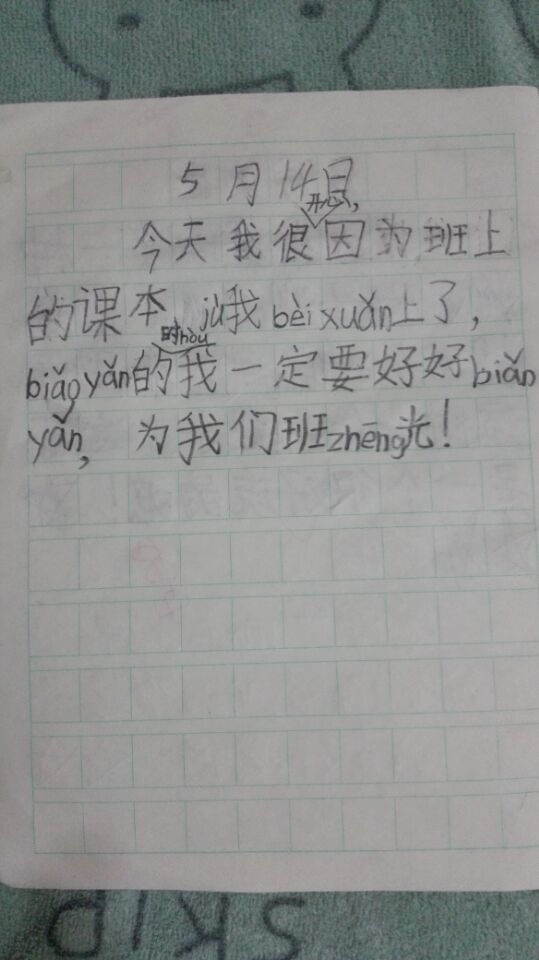 5月14日
今天我很开心,因为班上
的课本jù我bèi xuǎn上了,
biǎo yǎn的时hòu我一定要好好biǎn
yǎn,为我们班zhēng光!
SKID